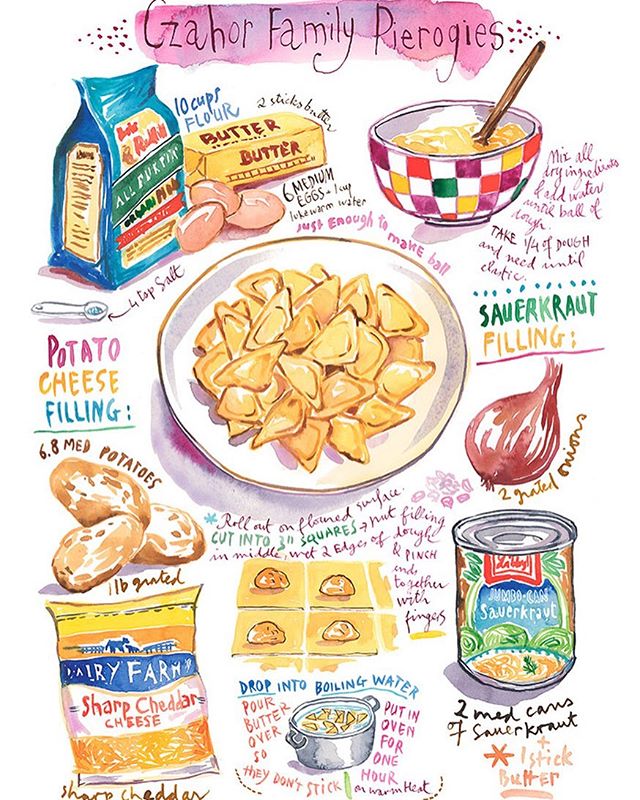 Czahor Family Pierogies
10 cups
FLOUR
2 sticks butter
BUTTER
BUTTER
Red Mill
ALL PURPOSE
6 MEDIUM
EGGS + 1 cup
lukewarm water
just enough to make ball
Mix all
dry ingredients
& add water
until ball of
dough.
TAKE 1/4 of DOUGH
and need until
elastic.
4 tsp salt
POTATO
CHEESE
FILLING:
SAUERKRAUT
FILLING:
6.8 MED POTATOES
2 grated onions
* Roll out on floured surface.
CUT INTO 3" SQUARES → put filling
in middle, wet 2 edges of dough
& PINCH
ends
together
with
fingers
1 lb grated
DAIRY FARM
Sharp Cheddar
CHEESE
sharp cheddar
Libby's
JUMBO-CAN
Sauerkraut
2 med cans
of Sauerkraut
+
* 1 stick
Butter
DROP INTO BOILING WATER
POUR
BUTTER
OVER
SO
they DON'T STICK
PUT IN
OVEN
FOR
ONE
HOUR
on warm Heat